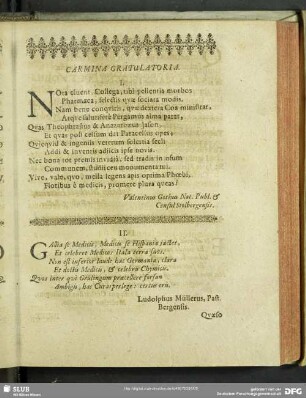 CARMINA GRATULATORIA.
I.
NOta cluent, Collega, tibi pellentia morbos
Pharmaca, selectis quæ sociata modis.
Nam bene conquiris, quæ dextera Coa ministrat.
Atque salutiferè Pergamus alma parat,
Quas Theophrastus &
Et quas post cessum dat Paracelsus opes,
Quicquid & ingenua veterum solertia
Addi & inventis adiicis ipse novis.
Nec bona tot premis invidiâ, sed tradis in usum
Communem, studii ceu monumenta tui.
Vive, vale, quo meila legens apis optima Phœbi,
Floribus è medicis, promere plura queas!
Valentinus Gothus Not. Publ. &
Consul Stolbergensis.
II.
GAllia se Medicis, Medicis se Hispania jactet,
Et celebret Medicos Itala terra suos.
Non est inferior laude hac Germania, clara
Et doctis Medicis, & celebris Chymicis.
Quos inter quò Grülingum præcellere forsan
Ambigis, hæc Chara perlege: certus eris.
Ludolphus Müllerus, Past.
Bergensis.
Quæso
SLUB
Wir führen Wissen.